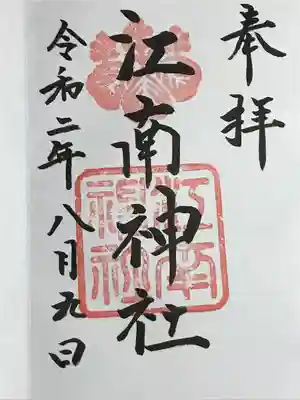 奉拝
江南神社
江南神社
令和二年八月九日